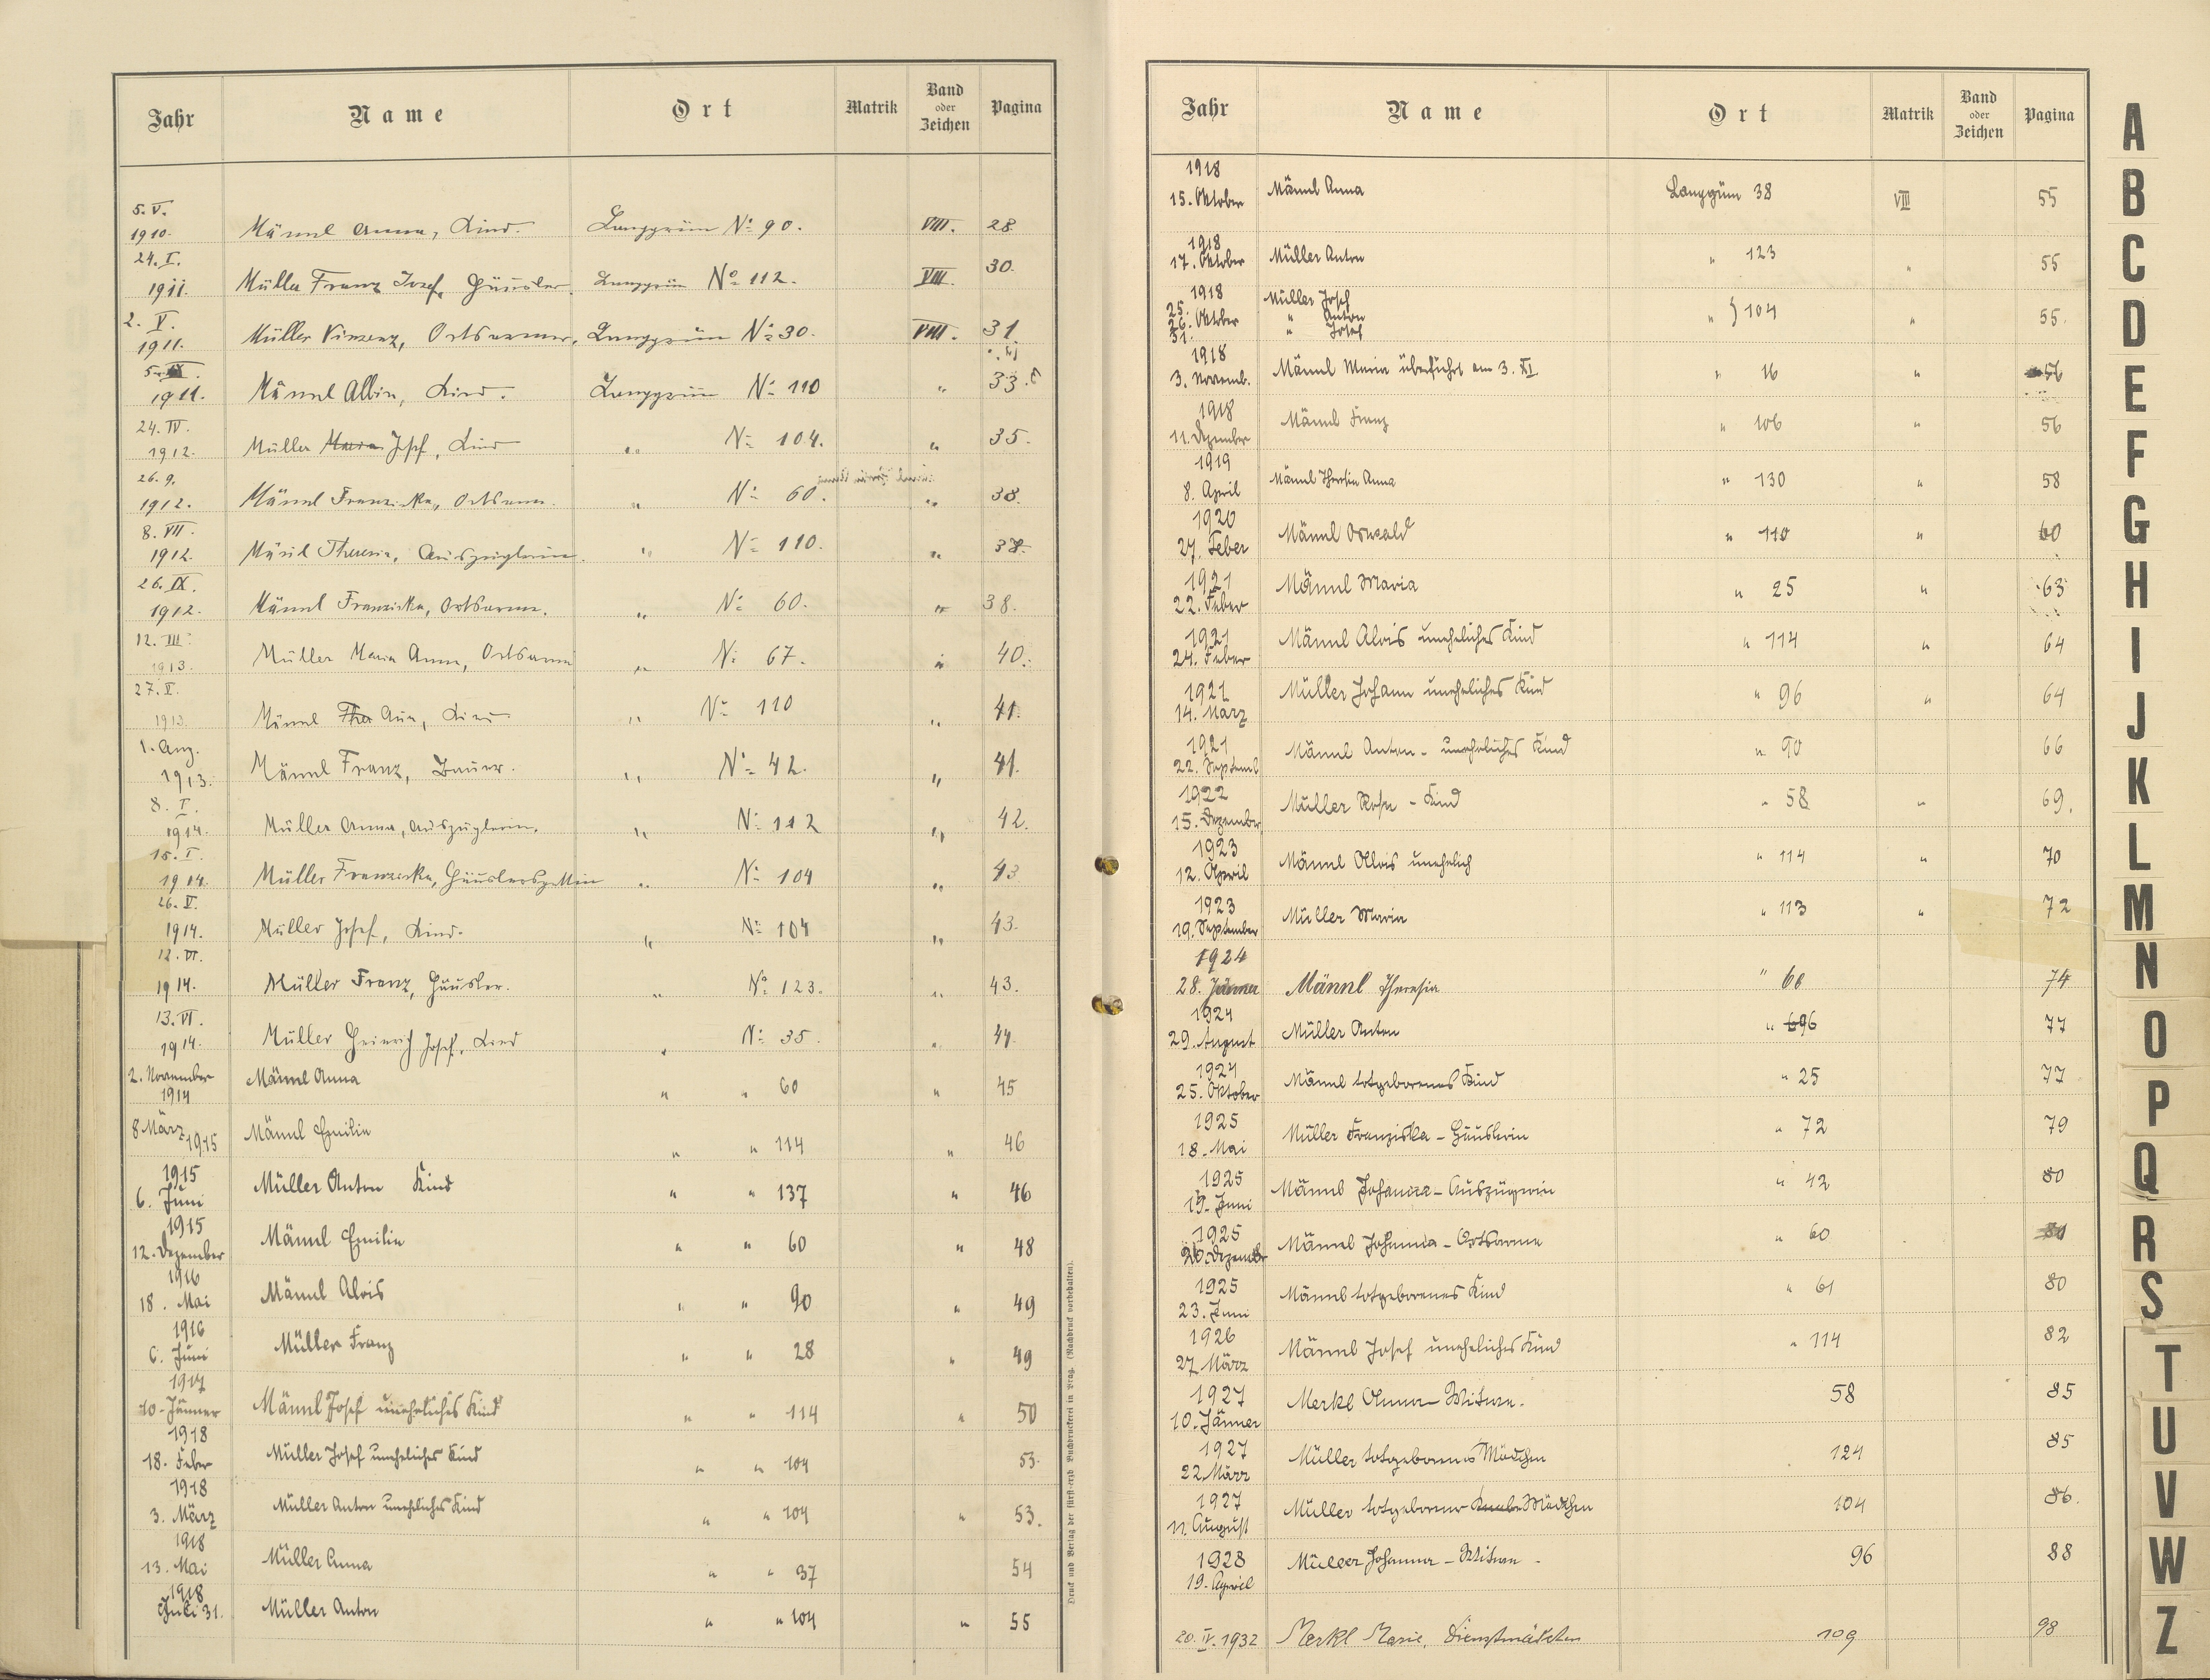 Jahr Name Ort Matrik Band oder Zeichen Pagina
5. V. 1910. Männl Anna, Kind. Langgrün N: 90. VIII. 28
24. I. 1911. Müller Franz Josef, Häusler. Langgrün No 112. VIII. 30.
2. V. 1911. Müller Vinzenz, Ortsarmer, Langgrün N: 30. VIII. 31.
1911. Männl Albin, Kind. Langgrün N: 110 " 33.
24. IV. 1912. Müller Maria Josef, Kind " N: 104. " 35.
26. 9. 1912. Männl Franziska, Ortsarme. " N: 60. " 38.
8. VII. 1912. Männl Theresia, Auszüglerin. " N: 110. " 38.
26. IX. 1912. Männl Franziska, Ortsarme. " N: 60. " 38.
12. III. 1913. Müller Maria Anna, Ortsarme " N: 67. " 40.
27. V. 1913. Männl Ther Ana, Kind. " N: 110 " 41.
1. Aug. 1913. Männl Franz, Bauer. " N: 42. " 41.
8. I. 1914. Müller Anna, Auszüglerin. " N: 112 " 42.
15. I. 1914. Müller Franziska, Häuslersgattin " N: 104 " 43
26. V. 1914. Müller Josef, Kind. " N: 104 " 43.
12. VI. 1914. Müller Franz, Häusler. " No 123. " 43.
13. VI. 1914. Müller Heinrich Josef, Kind " N: 35. " 44.
2. November 1914 Männl Anna " " 60 " 45
8 März 1915 Männl Emilie " " 114 " 46
1915 6. Juni Müller Anton Kind " " 137 " 46
1915 12. Dezember Männl Emilie " " 60 " 48
1916 18. Mai Männl Alois " " 90 " 49
1916 6. Juni Müller Franz " " 28 " 49
1917 10. Jänner Männl Josef uneheliches Kind " " 114 " 50
1918 18. Feber Müller Josef uneheliches Kind " " 104 53.
1918 3. März Müller Anton uneheliches Kind " " 104 " 53.
1918 13. Mai Müller Anna " " 37 54
1918 Juli 31. Müller Anton " " 104 " 55
Druck und Verlag der fürst-erzb. Buchdruckerei in Prag. (Nachdruck vorbehalten).
Jahr Name Ort Matrik Band oder Zeichen Pagina
1918 15. Oktober Männl Anna Langgrün 38 VIII 55
1918 17. Oktober Müller Anton " 123 " 55
1918 25. 26. Oktober 31. Müller Josef " Anton " Josef " } 104 " 55.
1918 3. Novemb. Männl Maria überführt am 3. XI. " 16 " 56
1918 11. Dezember Männl Franz " 106 " 56
1919 8. April Männl Theresia Anna " 130 " 58
1920 27. Feber Männl Oswald " 110 " 60
1921 22. Feber Männl Maria " 25 " 63
1921 24. Feber Männl Alois uneheliches Kind " 114 " 64
1921 14. März Müller Johann uneheliches Kind " 96 " 64
1921 22. Septemb Männl Anton - uneheliches Kind " 90 66
1922 15. Dezember Müller Rosa - Kind " 58 " 69.
1923 12. April Männl Alois unehelich " 114 " 70
1923 19. September Müller Maria " 113 " 72
1924 28. Jänner Männl Theresia " 66 74
1924 29. August Müller Anton " 96 77
1924 25. Oktober Männl totgeborenes Kind " 25 77
1925 18. Mai Müller Franziska - Häuslerin " 72 79
1925 15. Juni Männl Johanna - Auszüglerin " 42 80
1925 20. Dezember Männl Johanna - Ortsarme " 60
1925 23. Juni Männl totgeborenes Kind " 61 80
1926 27. März Männl Josef uneheliches Kind " 114 82
1927 10. Jänner Merkl Anna - Witwe. 58 85
1927 22. März Müller totgeborenes Mädchen 124 85
1927 11. August Müller totgeborener Knabe Mädchen 104 86.
1928 19. April Müller Johanna - Witwe - 96 88
20. IV. 1932 Merkl Marie, Dienstmädchen 109 98
A
B
C
D
E
F
G
H
I
J
K
L
M
N
O
P
Q
R
S
T
U
V
W
Z